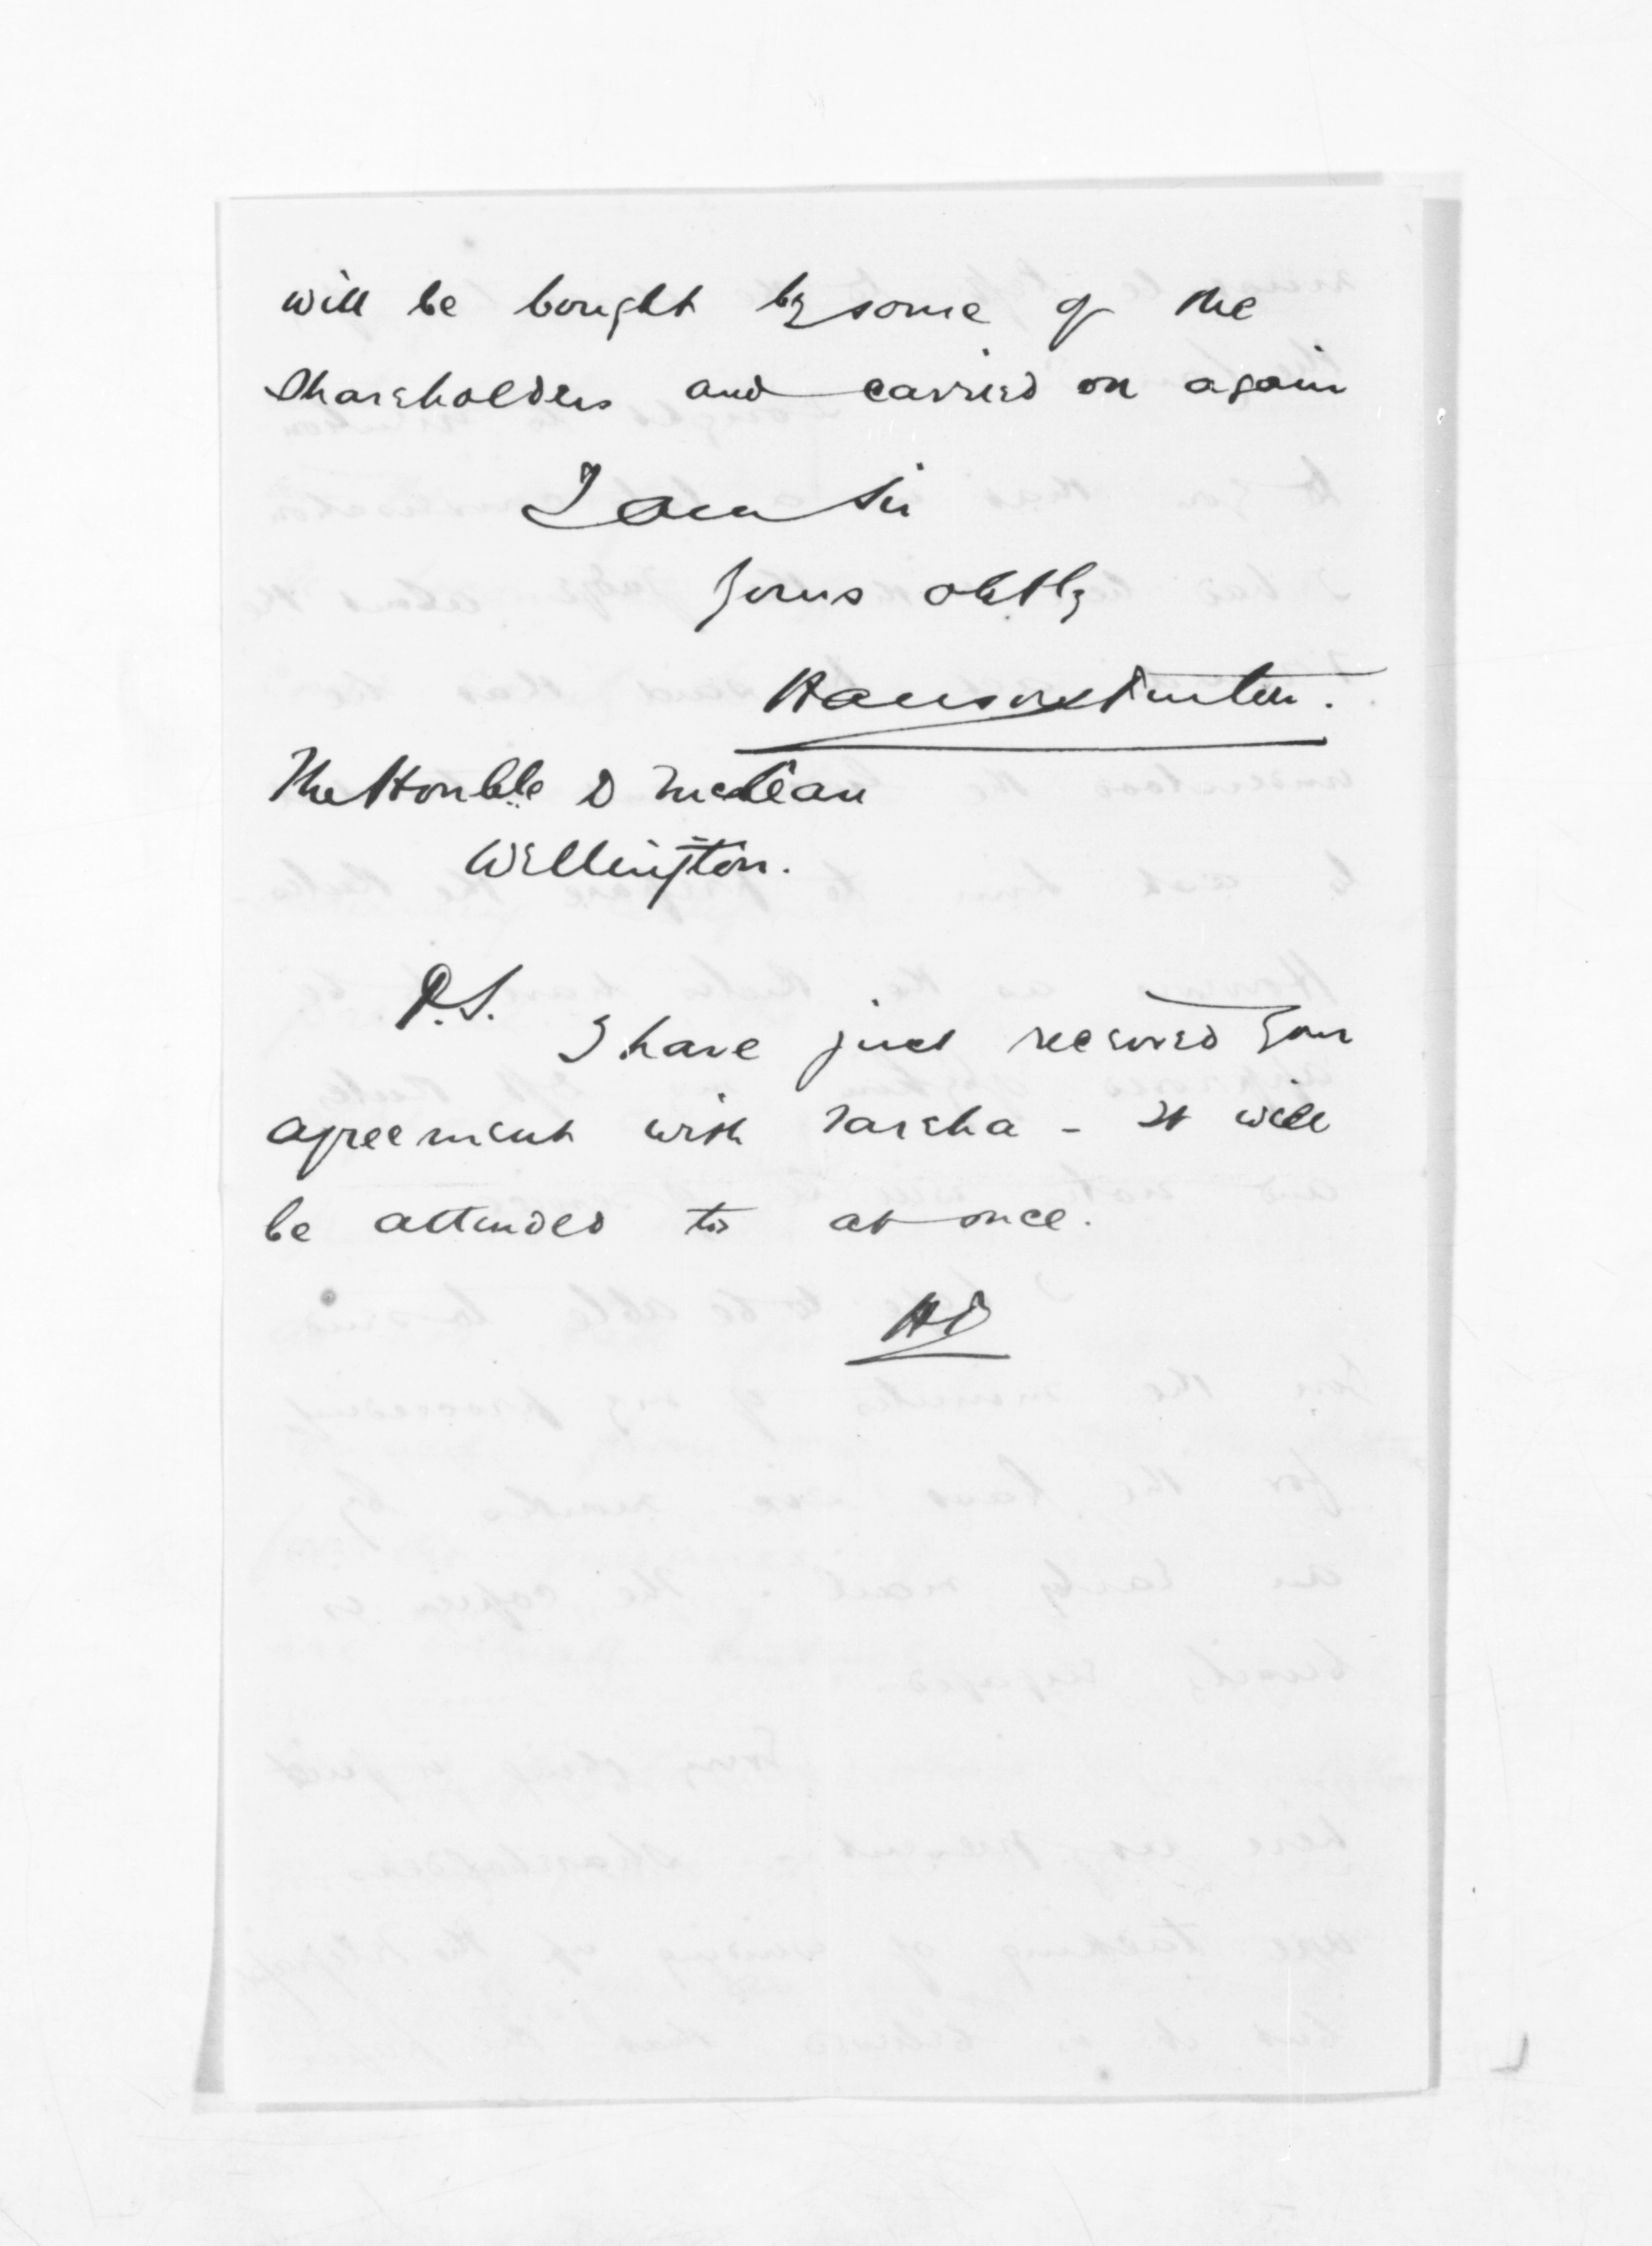 will be bought by some of the
Shareholders and carried on again
I am Sir
Yours obtly
Hanson Turton.
The Honble D McLean
Wellington.
P.S.
I have just received your
agreement with Tareha - It will
be attended to at once.
HT